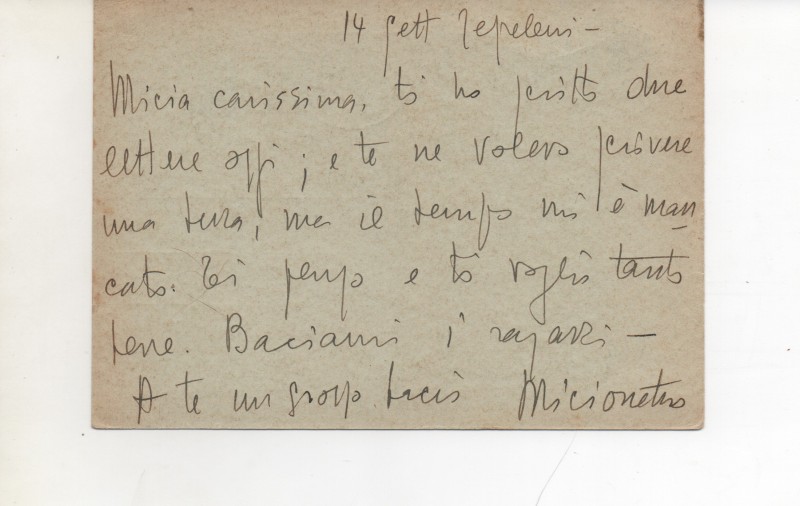 14 sett Tepeleni -
Micia carissima, ti ho scritto due
lettere oggi; e te ne volevo scrivere
una terza, ma il tempo mi è man
cato. Ti penso e ti voglio tanto
bene. Baciami i ragazzi -
A te un grosso bacio Micionetto